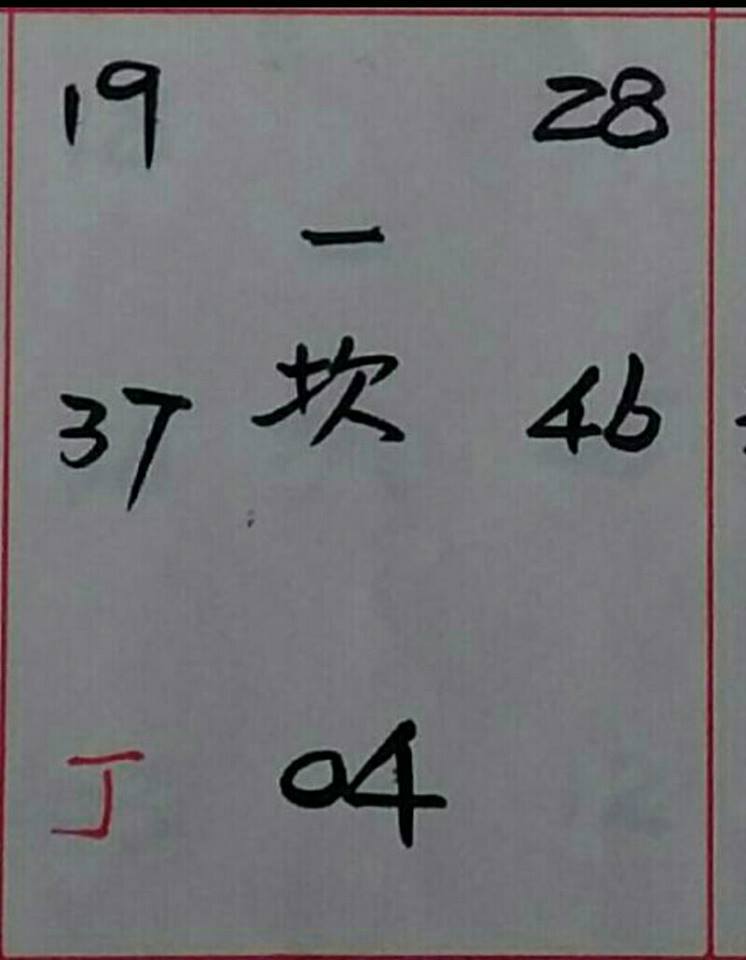 19 28
一
37 坎 46
丁 04